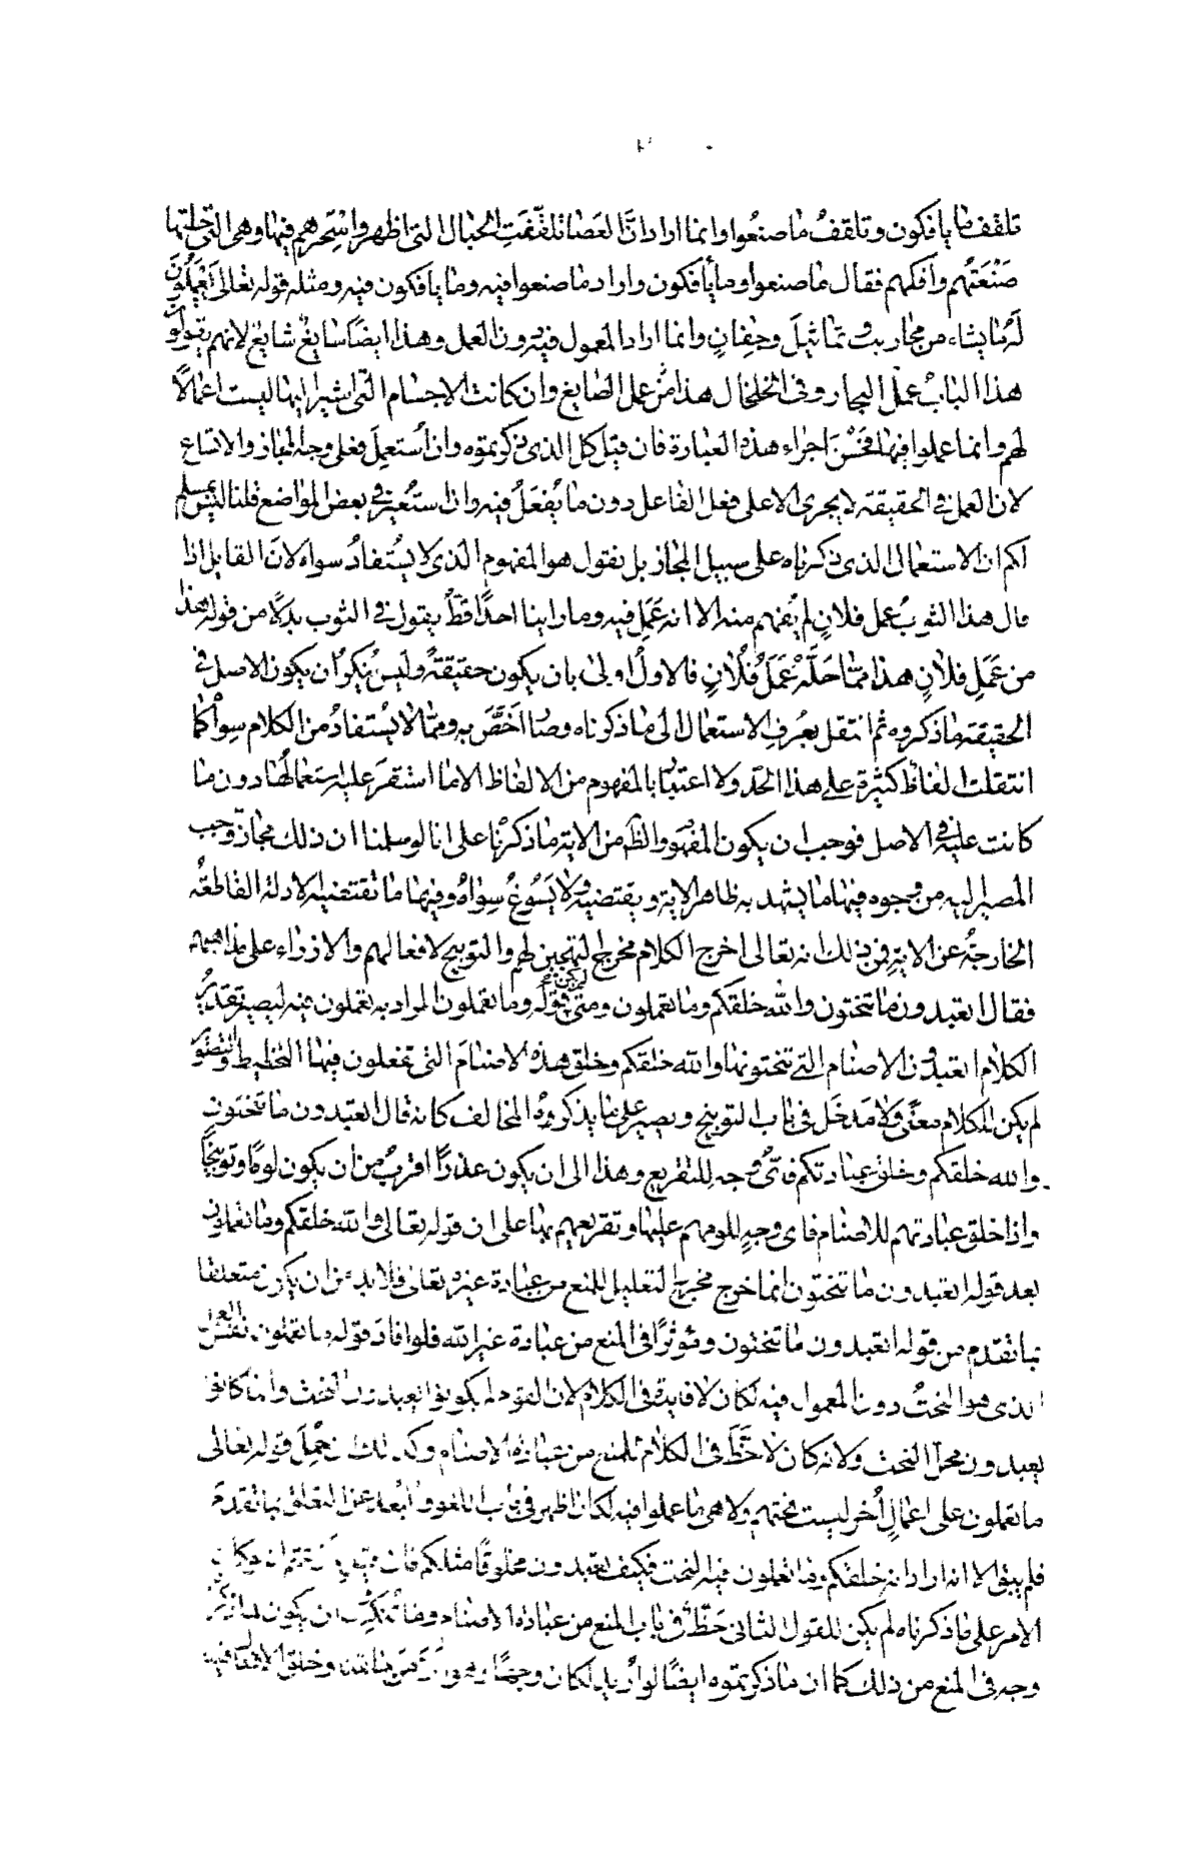 تلقف ما يافكون وتلقف ما صنعوا وانما اراد ان العصا تلقفت الحبال التى اظهروا سحرهم فيها وهى التى حلتها
صنعتهم وافكهم فقال ما صنعوا وما يافكون واراد ما صنعوا فيه وما يافكون فيه ومثله قوله تعالى يعملون
له ما يشاء من محاريب وتماثيل وجفان وانما اراد المعمول فيه دون العمل وهذا ايضا سايغ شايع لانهم يقولون
هذا الباب عمل النجار وفى الخلخال هذا من عمل الصايغ وان كانت الاجسام التى اشير اليها ليست اعمالا
لهم وانما عملوا فيها فحسن اجراء هذه العبارة فان قيل كل الذى ذكرتموه وان استعمل فعلى وجه المجاز والاتساع
لان العمل فى الحقيقة لا يجرى الا على فعل الفاعل دون ما يفعل فيه وان استعير فى بعض المواضع قلنا ليس يسلم
لكم ان الاستعمال الذى ذكرناه على سبيل المجاز بل نقول هو المفهوم الذى لا يستفاد سواه لان القايل اذا
قال هذا الثوب عمل فلان لم يفهم منه الا انه عمل فيه وما راينا احدا قط يقول فى الثوب بدلا من قوله هذا
من عمل فلان هذا مما حله عمل فلان فالاول اولى بان يكون حقيقة وليس ينكر ان يكون الاصل فى
الحقيقة ما ذكروه ثم انتقل بعرف الاستعمال الى ما ذكرناه وصار اخص به ومما لا يستفاد من الكلام سواه كما
انتقلت الفاظ كثيرة على هذا الحد ولا اعتبار بالمفهوم من الالفاظ الا ما استقر عليه استعمالها دون ما
كانت عليه فى الاصل فوجب ان يكون المفهوم والظ من الاية ما ذكرنا على انا لو سلمنا ان ذلك مجاز وجب
المصير اليه من وجوه فيها ما يشهد به ظاهر الاية ويقتضيه ولا يسوغ سواه وفيها ما تقتضيه الادلة القاطعة
الخارجة عن الاية فمن ذلك انه تعالى اخرج الكلام مخرج التهجين لهم والتوبيخ لافعالهم والازراء على مذاهبهم
فقال اتعبدون ما تنحتون والله خلقكم وما تعملون ومتى لم يكن قوله وما تعملون المراد به تعملون فيه ليصير تقدير
الكلام اتعبدون الاصنام التى تنحتونها والله خلقكم وخلق هذه الاصنام التى تفعلون فيها التخطيط والتصوير
لم يكن للكلام معنى ولا مدخل فى باب التوبيخ ويصير على ما يذكره المخالف كانه قال اتعبدون ما تنحتون
والله خلقكم وخلق عبادتكم فاى وجه للتقريع وهذا الى ان يكون عذرا اقرب من ان يكون لوما وتوبيخا
واذا خلق عبادتهم للاصنام فاى وجه للومهم عليها وتقريعهم بها على ان قوله تعالى والله خلقكم وما تعملون
بعد قوله اتعبدون ما تنحتون انما خرج مخرج التعليل للمنع من عبادة غيره تعالى فلا بد من ان يكون متعلقا
بما تقدم من قوله اتعبدون ما تنحتون ومؤثرا فى المنع من عبادة غير الله فلو افاد قوله ما تعملون نفس العمل
الذى هو النحت دون المعمول فيه لكان لا فايدة فى الكلام لان القوم لم يكونوا يعبدون النحت وانما كانوا
يعبدون محل النحت ولانه كان لا حظ فى الكلام للمنع من عبادة الاصنام وكذلك ان حمل قوله تعالى
ما تعملون على اعمال اخر ليست نحتهم ولا هى ما عملوا فيه لكان اظهر فى باب اللغو وابعد عن التعلق بما تقدم
فلم يبق الا انه اراد انه خلقكم وما تعملون فيه النحت فكيف تعبدون مخلوقا مثلكم فان قيل لم زعمتم ان لو كان
الامر على ما ذكرناه لم يكن للقول الثانى حظ فى باب المنع من عبادة الاصنام وما تنكرون ان يكون لما ذكرناه
وجه فى المنع من ذلك كما ان ما ذكرتموه ايضا لو اريد لكان وجها